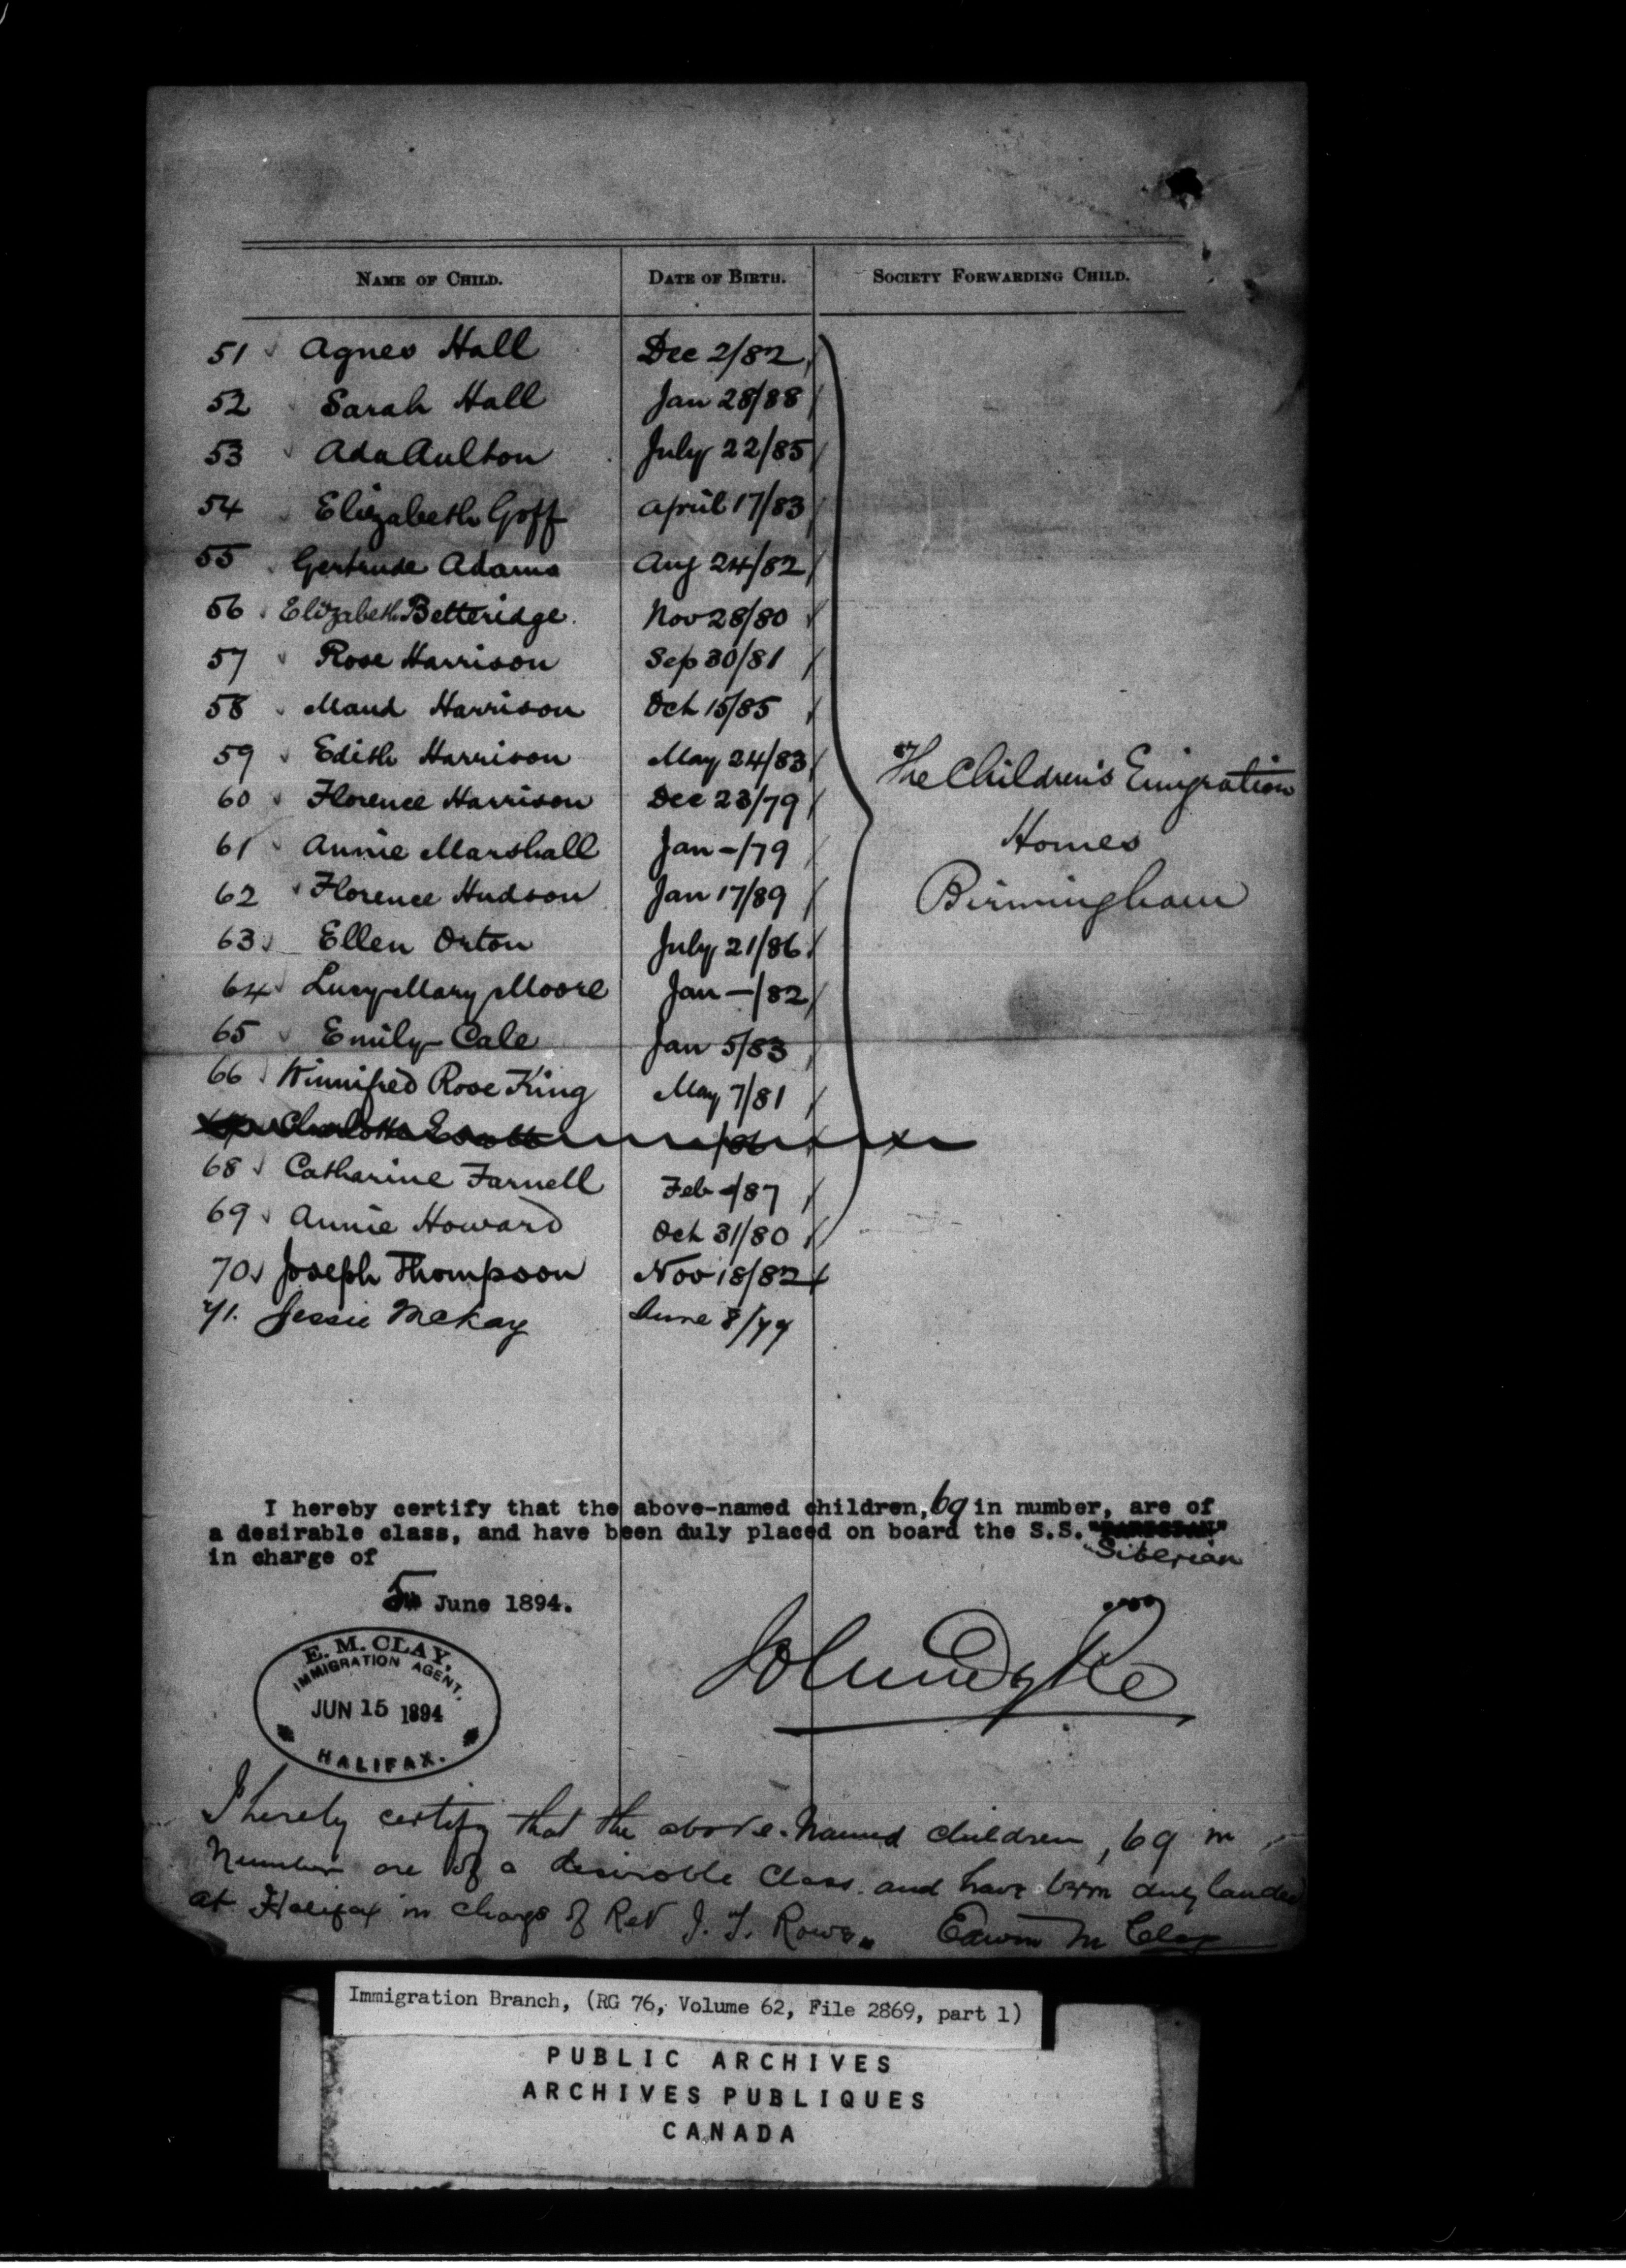 NAME OF CHILD. DATE OF BIRTH. SOCIETY FORWARDING CHILD.
51 Agnes Hall Dec 2/82
52 Sarah Hall Jan 28/88
53 Ada Aulton July 22/85
54 Elizabeth Goff April 17/83
55 Gertrude Adams Aug 24/82
56 Elizabeth Betteridge. Nov 28/80
57 Rose Harrison Sep 30/81
58 Maud Harrison Oct 15/85
59 Edith Harrison May 24/83
60 Florence Harrison Dec 23/79
61 Annie Marshall Jan -/79
62 Florence Hudson Jan 17/89
63 Ellen Orton July 21/86
64 Lucy Mary Moore Jan -/82
65 Emily Cale Jan 5/83
66 Winnifred Rose King May 7/81
Charlotte /86
68 Catharine Farnell Feb -/87
69 Annie Howard Oct 31/80
70 Joseph Thompson Nov 18/82
71. Jessie McKay June 8/79
The Children's Emigration
Homes
Birmingham
I hereby certify that the above-named children, 69 in number, are of
a desirable class, and have been duly placed on board the S.S. "PARISIAN"
"Siberian
in charge of
5 June 1894.
E. M. CLAY,
IMMIGRATION AGENT,
JUN 15 1894
HALIFAX.
I hereby certify that the above-named children, 69 in
Number are of a desirable class. and have been duly landed
at Halifax in charge of Rev J. T. Rowe. Edwin M Clay
Immigration Branch, (RG 76, Volume 62, File 2869, part 1)
PUBLIC ARCHIVES
ARCHIVES PUBLIQUES
CANADA